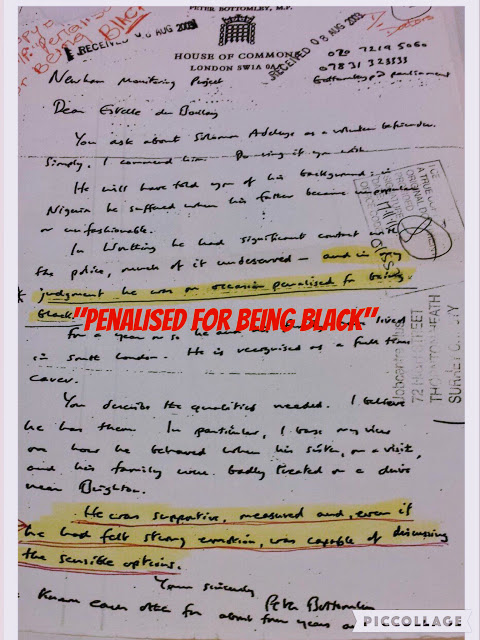 PETER BOTTOMLEY, M.P.
RECEIVED 08 AUG 2003
RECEIVED 08 AUG 2003
HOUSE OF COMMONS
LONDON SW1A 0AA
020 7219 5060
07831 323333
Newham Monitoring Project
Dear Estelle du Boulay
You ask about Solomon Adeleye as a volunteer befriender.
Simply, I commend him. you wish
He will have told you of his background: in
Nigeria he suffered when his father became
or unfashionable.
In Worthing he had significant contact with
the police, much of it undeserved - and in my
judgment he was on occasion penalised for being
black.
"PENALISED FOR BEING BLACK"
For a year or so he and his lived
in south London. He is recognised as a full time
carer.
You describe the qualities needed. I believe
he has them. In particular, I base my view
on how he behaved when his sister, on a visit,
and his family were badly treated on a drive
near Brighton.
He was supportive, measured and, even if
he had felt strong emotion, was capable of discussing
the sensible options.
Yours sincerely
Peter Bottomley
for about four years
Jobcentre Plus
HIGH STREET
THORNTON HEATH
SURREY
PICCOLLAGE